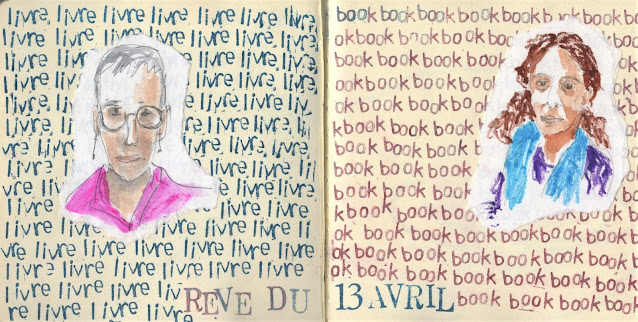 livre livre livre livre livre livre livre
livre livre livre livre livre
livre livre livre livre
livre livre livre livre
livre livre livre livre
livre livre livre
livre livre livre
livre livre livre
livre livre livre li
vre livre livre livre
livre livre livre
livre livre livre livre
livre livre livre livre livre livre livre
livre livre livre livre livre livre
livre livre livre liv
REVE DU
book book book book book book book book
okbook book book book book
book book book book
okbook book book book
book book book book
okbook book book book
kbook book book book
book book book book
book book book book
k book book book book
book book book book book
book book book book book book book
ok book book book book book book
book book book book book book book
13 AVRIL
book book book book